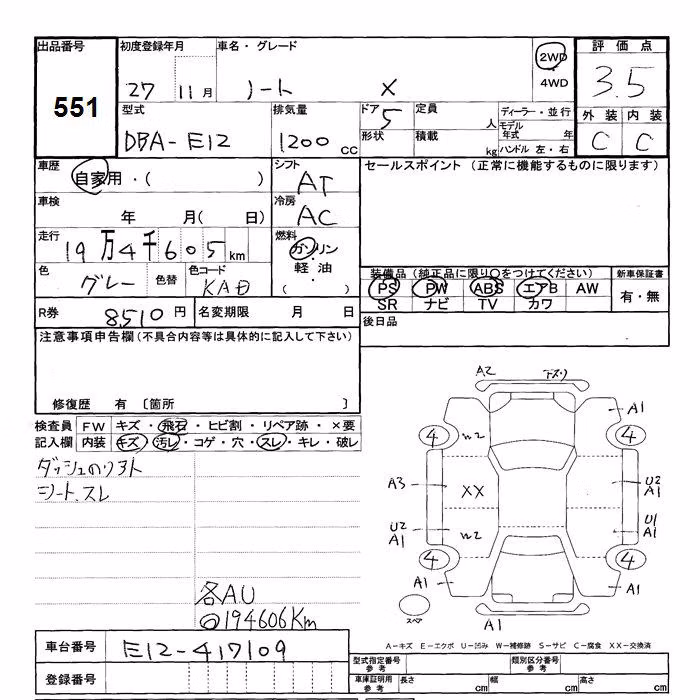 出品番号
551
初度登録年月
27 11月
車名・グレード
ノート X
2WD
4WD
評価点
3.5
型式
DBA-E12
排気量
1200 CC
ドア 5
形状
定員 人
積載 kg
ディーラー・並行
モデル年式 年
ハンドル 左・右
外装 内装
C C
車歴
自家用・( )
シフト
AT
セールスポイント (正常に機能するものに限ります)
車検
年 月( 日)
冷房
AC
走行
19万4千605km
燃料
ガソリン
軽油
( )
色
グレー
色替
色コード
KAD
装備品(純正品に限り○をつけてください)
PS PW ABS エアB AW
SR ナビ TV カワ
新車保証書
有・無
R券 8510円
名変期限 月 日
後日品
注意事項申告欄(不具合内容等は具体的に記入して下さい)
修復歴 有 〔箇所 〕
検査員 FW キズ・飛石・ヒビ割・リペア跡・×要
記入欄 内装 キズ・汚レ・コゲ・穴・スレ・キレ・破レ
シート、スレ
各A.U
194606Km
A2
A1
4 W2 4
A3 XX U2
A1
U2 W2 U1
A1 A1
4 4
A1 A1
スペア
A1
A-キズ E-エクボ U-凹み W-補修跡 S-サビ C-腐食 XX-交換済
車台番号 E12-417109
登録番号
型式指定番号 参考
類別区分番号 参考
車庫証明用 参考
長さ cm
幅 cm
高さ cm